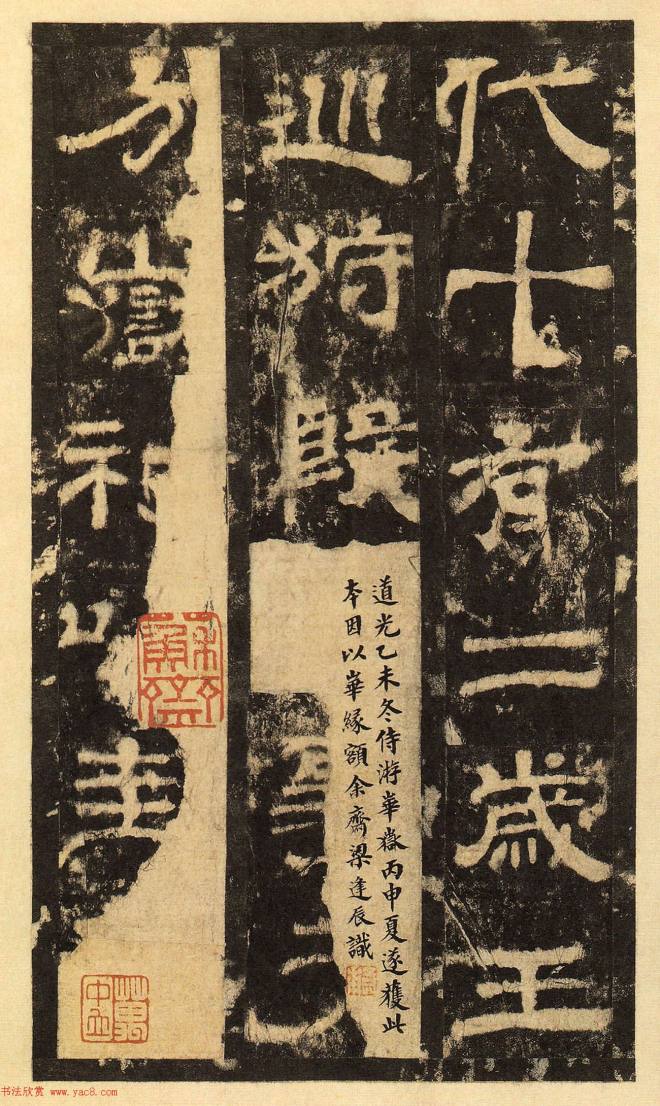 代十有二歲王
巡狩殷
方嶽祀以圭
道光乙未冬侍游華嶽丙申夏遂獲此
本因以華緣額余齋梁逢辰識
书法欣赏 www.yac8.com